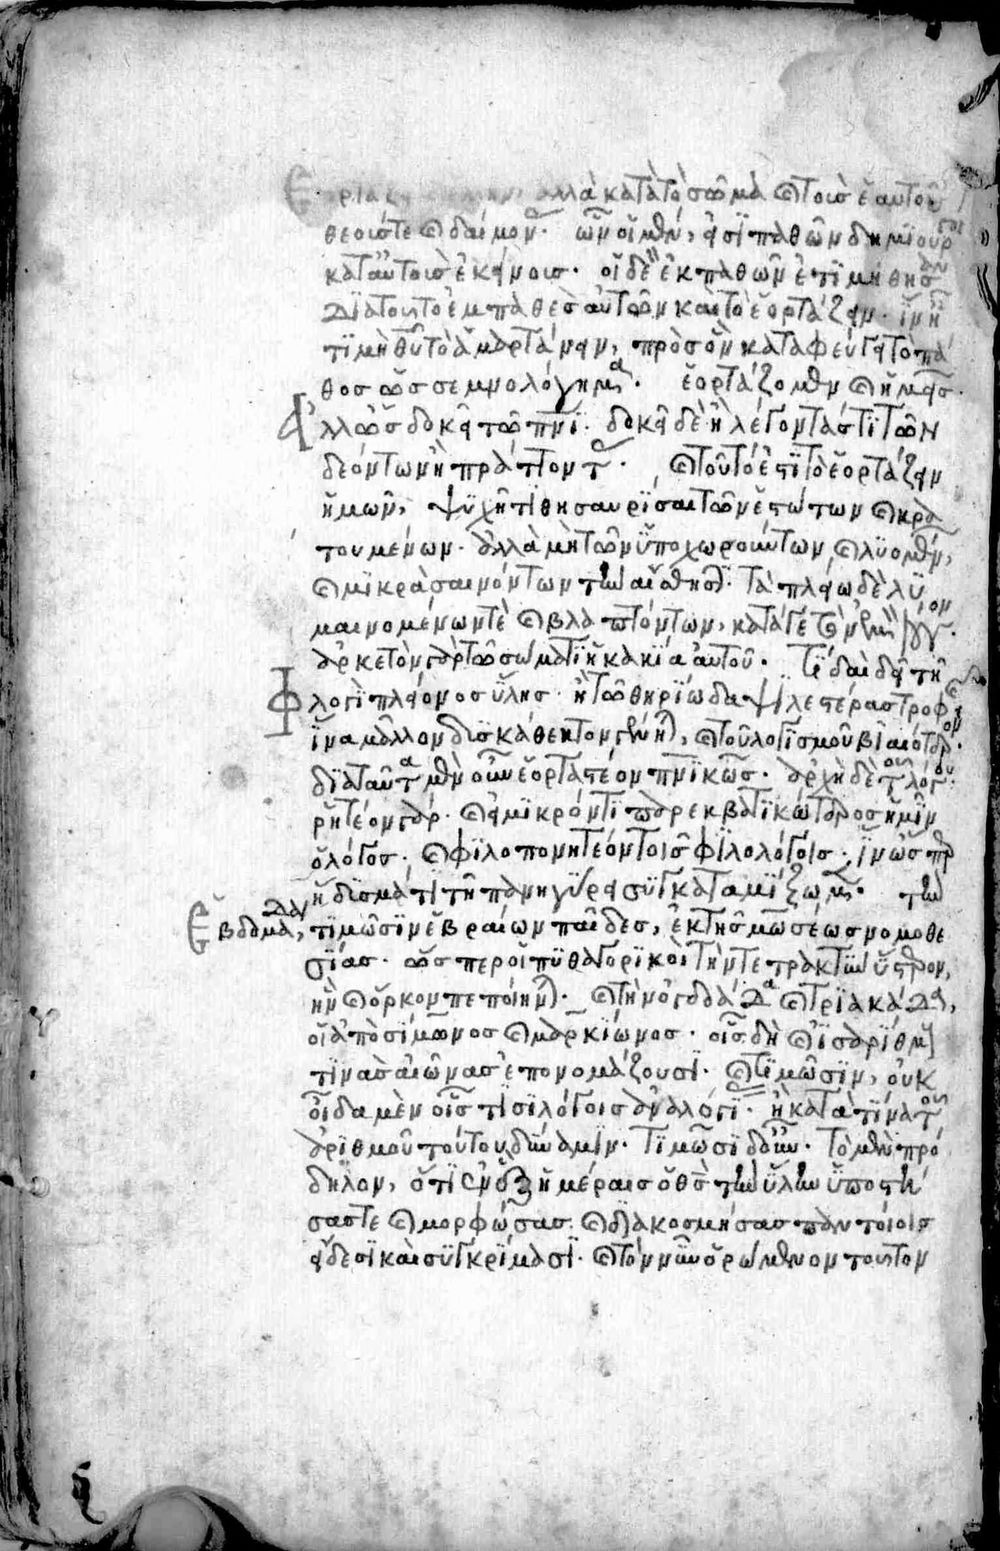 ἀλλὰ κατὰ τὸ σῶμα καὶ τοῖς ἑαυτοῦ
θεοῖς τε καὶ δαίμοσιν· ὧν οἱ μὲν, εἰσὶ παθῶν δημιουργοὶ
κατ' αὐτοὺς ἐκείνους· οἱ δὲ ἐκ παθῶν ἐτιμήθησαν
διὰ τοῦτο ἐμπαθὲς αὐτῶν καὶ τὸ ἑορτάζειν· ἵν' ᾖ
τιμὴ θεοῦ τὸ ἁμαρτάνειν, πρὸς ὃν καταφεύγει τὸ πά
θος ὡς σεμνολόγημα· ἑορτάζομεν καὶ ἡμεῖς·
ἀλλ' ὡς δοκεῖ τῷ πνι· δοκεῖ δὲ ἢ λέγοντάς τι τῶν
δεόντων ἢ πράττοντας· καὶ τοῦτό ἐστι τὸ ἑορτάζειν
ἡμῶν, ψυχῇ τι θησαυρίσαι τῶν ἑστώτων καὶ κρα
τουμένων· ἀλλὰ μὴ τῶν ὑποχωρούντων, καὶ λυομένων,
καὶ μικρὰ σαινόντων τὴν αἴσθησιν· τὰ πλείω δὲ λυ
μαινομένων τε καὶ βλαπτόντων, κατά γε τὸν ἐμὸν λόγον·
ἀρκετὸν γὰρ τῷ σώματι ἡ κακία αὐτοῦ· τί δαὶ δεῖ τῇ
φλογὶ πλείονος ὕλης· ἢ τῷ θηρίῳ δαψιλεστέρας τροφῆς
ἵνα μᾶλλον δυσκάθεκτον γένηται, καὶ τοῦ λογισμοῦ βιαιότερον·
διὰ ταῦτα μὲν οὖν ἑορταστέον πνικῶς· ἀρχὴ δὲ τοῦ λόγου·
ῥητέον γὰρ· κἂν εἰ μικρόν τι παρεκβατικώτερος ἡμῖν
ὁ λόγος· καὶ φιλοπονητέον τοῖς φιλολόγοις· ἵν' ὥσπερ
ἥδυσμά τι τῇ πανηγύρει συγκαταμίξωμεν· τὴν
Ἑβδομάδα, τιμῶσιν ἑβραίων παῖδες, ἐκ τῆς μωσέως νομοθε
σίας· ὥσπερ οἱ πυθαγορικοὶ τὴν τετρακτὺν ὕστερον,
ἣν καὶ ὅρκον πεποίηνται· καὶ τὴν ὀγδοάδα καὶ τριακάδα,
οἱ ἀπὸ σίμωνος καὶ μαρκίωνος· οἷς δὴ καὶ ἰσαρίθμους
τινὰς αἰῶνας ἐπονομάζουσι· καὶ τιμῶσιν, οὐκ
οἶδα μὲν οἷς τισὶ λόγοις ἀναλογίας· ἢ κατὰ τίνα τοῦ
ἀριθμοῦ τούτου δύναμιν· τιμῶσι δ' οὖν· τὸ μὲν πρό
δηλον, ὅτι ἐν ἓξ ἡμέραις ὁ θς τὴν ὕλην ὑποστή
σας τε καὶ μορφώσας· καὶ διακοσμήσας παντοίοις
εἴδεσι καὶ συγκρίμασι· καὶ τὸν νῦν ὁρώμενον τοῦτον